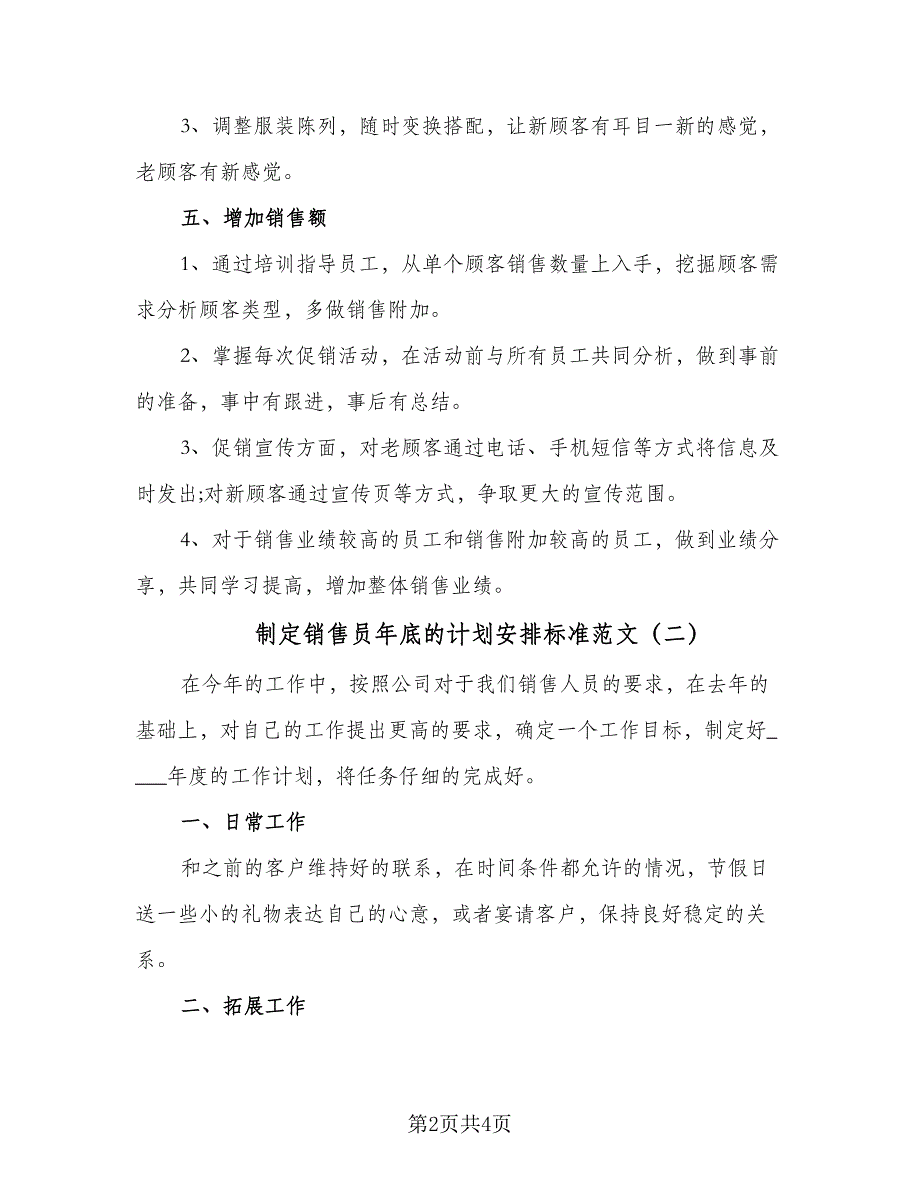 3、调整服装陈列，随时变换搭配，让新顾客有耳目一新的感觉，
老顾客有新感觉。
五、增加销售额
1、通过培训指导员工，从单个顾客销售数量上入手，挖掘顾客需
求分析顾客类型，多做销售附加。
2、掌握每次促销活动，在活动前与所有员工共同分析，做到事前
的准备，事中有跟进，事后有总结。
3、促销宣传方面，对老顾客通过电话、手机短信等方式将信息及
时发出;对新顾客通过宣传页等方式，争取更大的宣传范围。
4、对于销售业绩较高的员工和销售附加较高的员工，做到业绩分
享，共同学习提高，增加整体销售业绩。
制定销售员年底的计划安排标准范文（二）
在今年的工作中，按照公司对于我们销售人员的要求，在去年的
基础上，对自己的工作提出更高的要求，确定一个工作目标，制定好_
___年度的工作计划，将任务仔细的完成好。
一、日常工作
和之前的客户维持好的联系，在时间条件都允许的情况，节假日
送一些小的礼物表达自己的心意，或者宴请客户，保持良好稳定的关
系。
二、拓展工作
第2页共4页